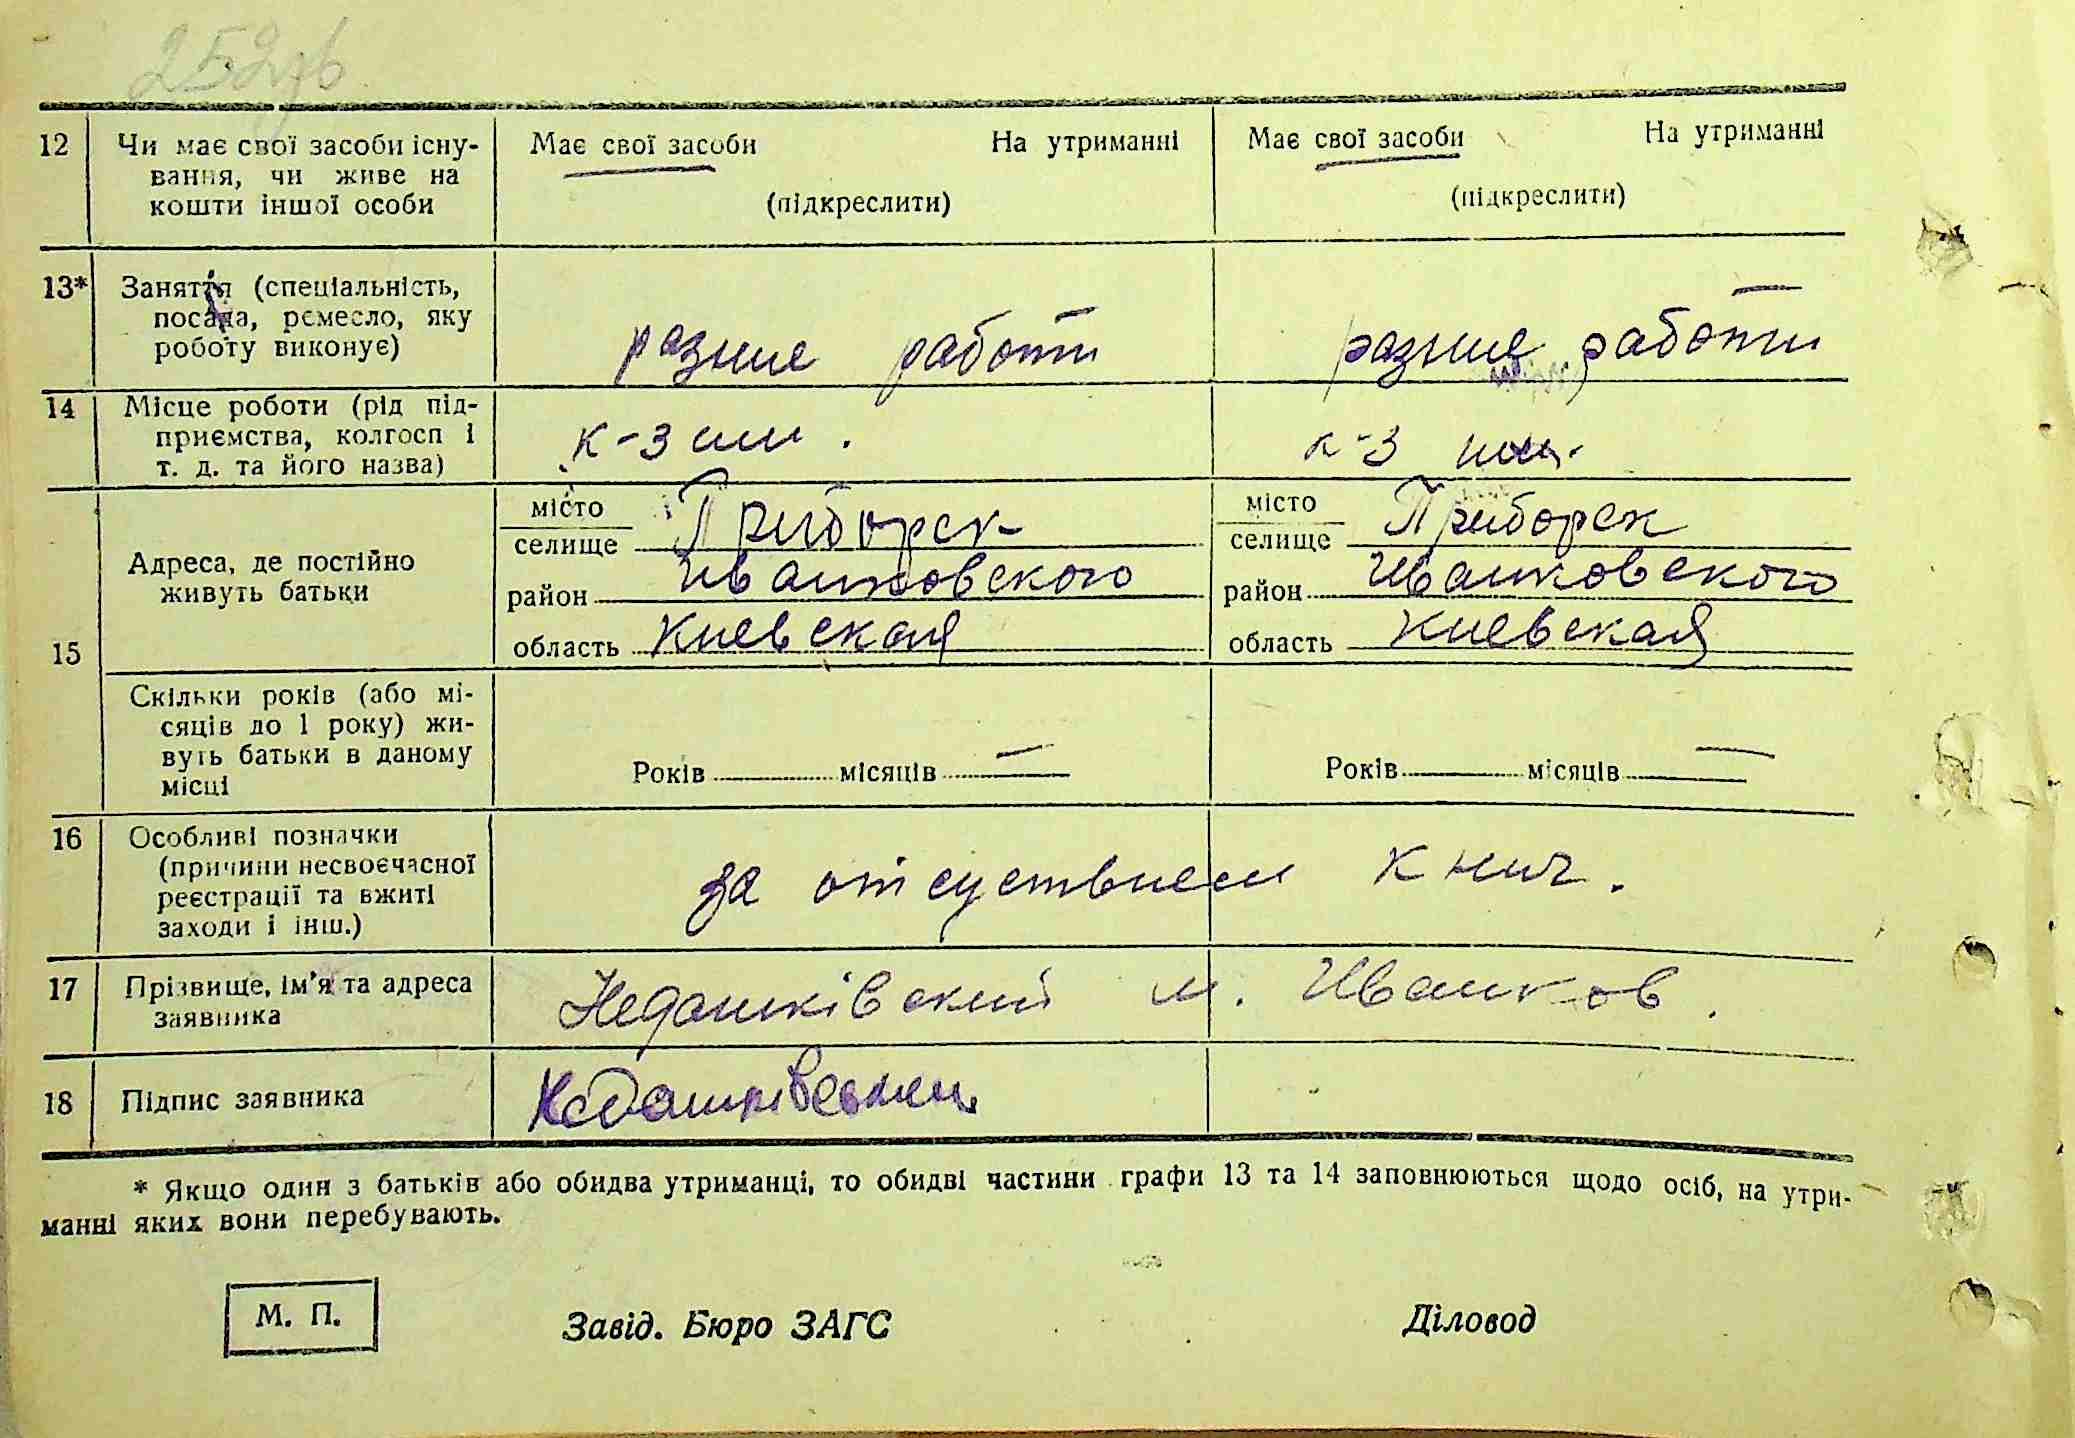 252зв
12 Чи має свої засоби існу- Має свої засоби На утриманні Має свої засоби На утриманні
вання, чи живе на
кошти іншої особи (підкреслити) (підкреслити)
13* Заняття (спеціальність,
посада, ремесло, яку
роботу виконує) разние работи разние работи
14 Місце роботи (рід під-
приємства, колгосп і к-з им. к-з им.
т. д. та його назва)
місто Приборск місто Приборск
селище селище
Адреса, де постійно
живуть батьки район Иванковского район Иванковского
область Киевская область Киевская
15
Скільки років (або мі-
сяців до 1 року) жи-
вуть батьки в даному
місці Років місяців — Років місяців —
16 Особливі позначки
(причини несвоєчасної
реєстрації та вжиті за отсуствием книг.
заходи і інш.)
17 Прізвище, ім'я та адреса Недашківский м. Иванков.
заявника
18 Підпис заявника Недашківський
* Якщо один з батьків або обидва утриманці, то обидві частини графи 13 та 14 заповнюються щодо осіб, на утри-
манні яких вони перебувають.
М. П. Завід. Бюро ЗАГС Діловод